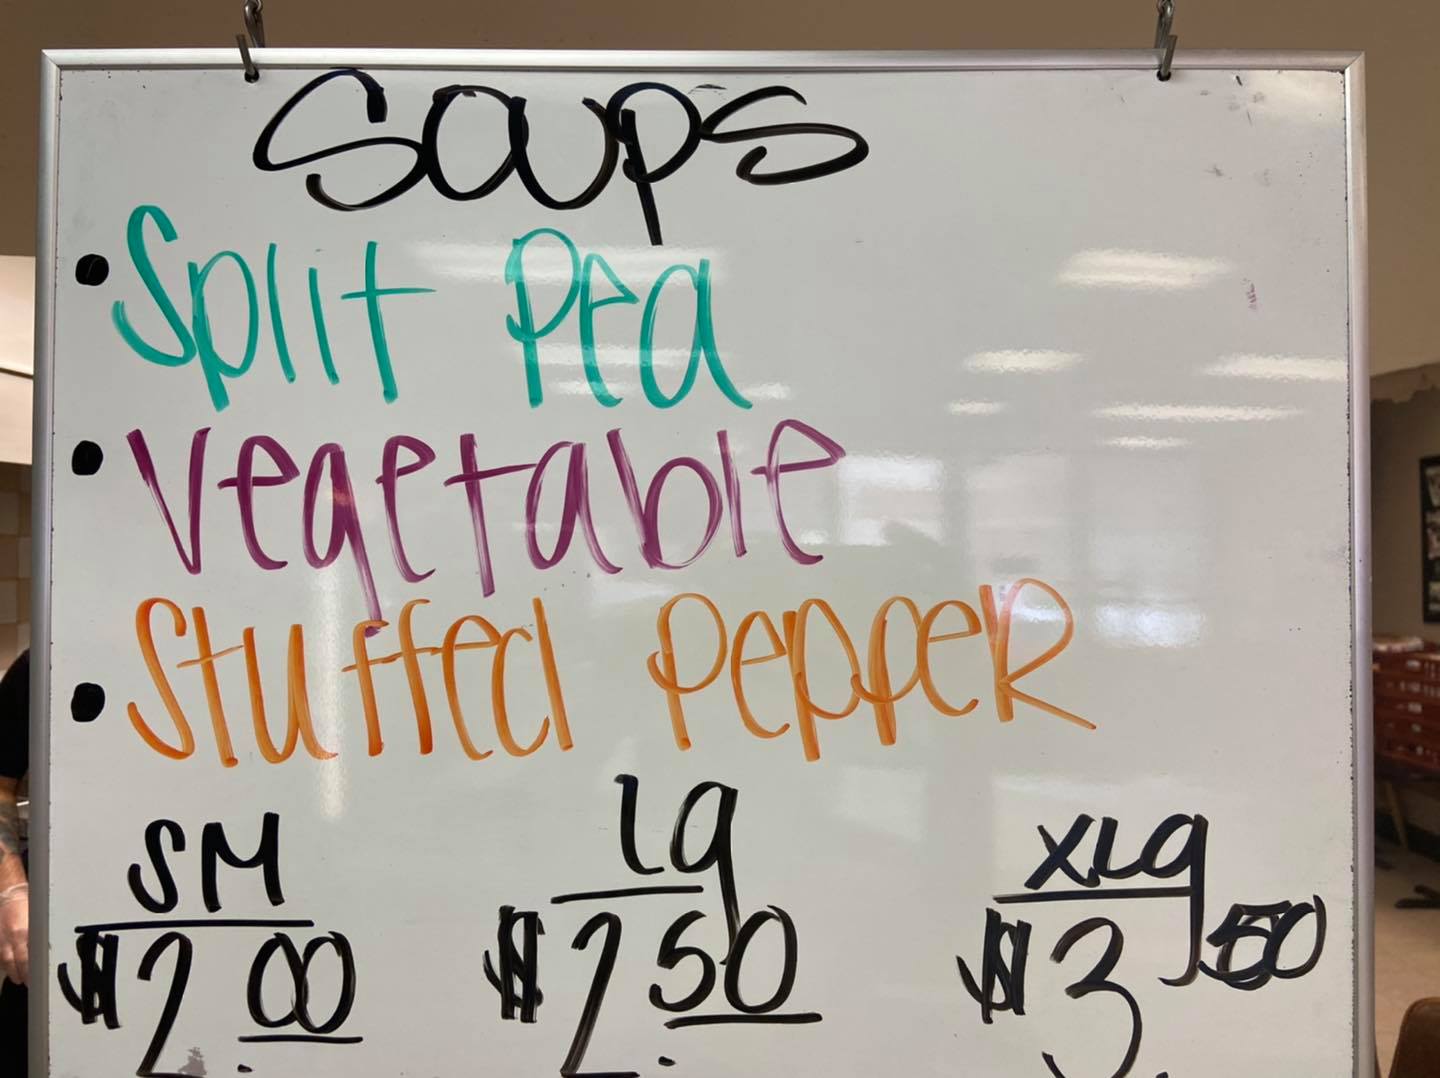 Soups
• Split Pea
• Vegetable
• Stuffed PeppeR
SM lg XLg
$2.00 $2.50 $3.50